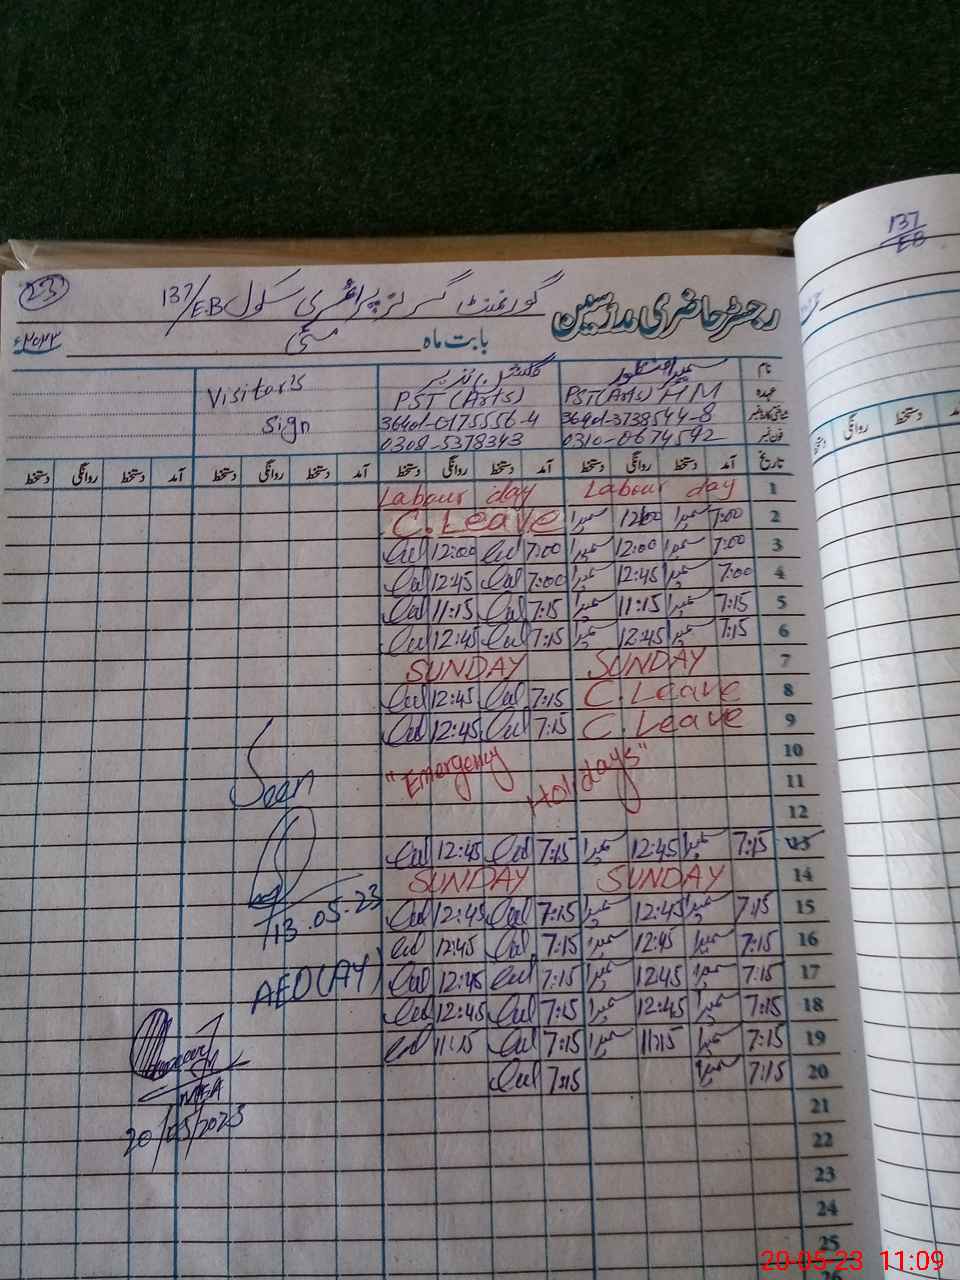 23
137/EB
رجسٹر حاضری مدرسین
گورنمنٹ گرلز پرائمری سکول 137/EB
بابت ماہ مئی ۲۰۲۳ء
نام
عہدہ PST(Arts) HM PST(Arts) Visitor's
شناختی کارڈ نمبر 36401-3738544-8 36401-0175556-4 Sign
فون نمبر 0310-0674592 0308-5378343
تاریخ آمد دستخط روانگی دستخط آمد دستخط روانگی دستخط آمد دستخط روانگی دستخط آمد دستخط روانگی دستخط
دستخط روانگی دستخط
1 Labour day Labour day
2 7:00 سمیرا 12:00 سمیرا C.Leave
3 7:00 سمیرا 12:00 سمیرا 7:00 12:00
4 7:00 سمیرا 12:45 سمیرا 7:00 12:45
5 7:15 سمیرا 11:15 سمیرا 7:15 11:15
6 7:15 سمیرا 12:45 سمیرا 7:15 12:45
7 SUNDAY SUNDAY
8 C.Leave 7:15 12:45
9 C.Leave 7:15 12:45
10
11 "Emergency Holidays"
12
13 7:15 سمیرا 12:45 سمیرا 7:15 12:45
14 SUNDAY SUNDAY
15 7:15 سمیرا 12:45 سمیرا 7:15 12:45
16 7:15 سمیرا 12:45 سمیرا 7:15 12:45
17 7:15 سمیرا 12:45 سمیرا 7:15 12:45
18 7:15 سمیرا 12:45 سمیرا 7:15 12:45
19 7:15 سمیرا 11:15 سمیرا 7:15 11:15
20 7:15 سمیرا 7:15
21
22
23
24
25
26
Seen
13.05.23
AEO(AY)
MEA
20/05/2023
20-05-23 11:09